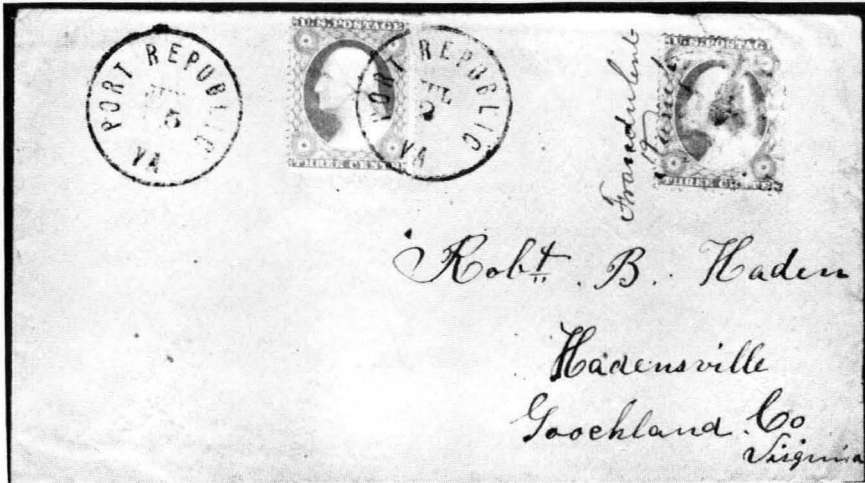 PORT REPUBLIC
5
VA
U.S. POSTAGE
THREE CENTS
PORT REPUBLIC
JUL
VA
Fraudulent
U.S. POSTAGE
THREE CENTS
Robt. B. Haden
Hadensville
Goochland Co
Virginia